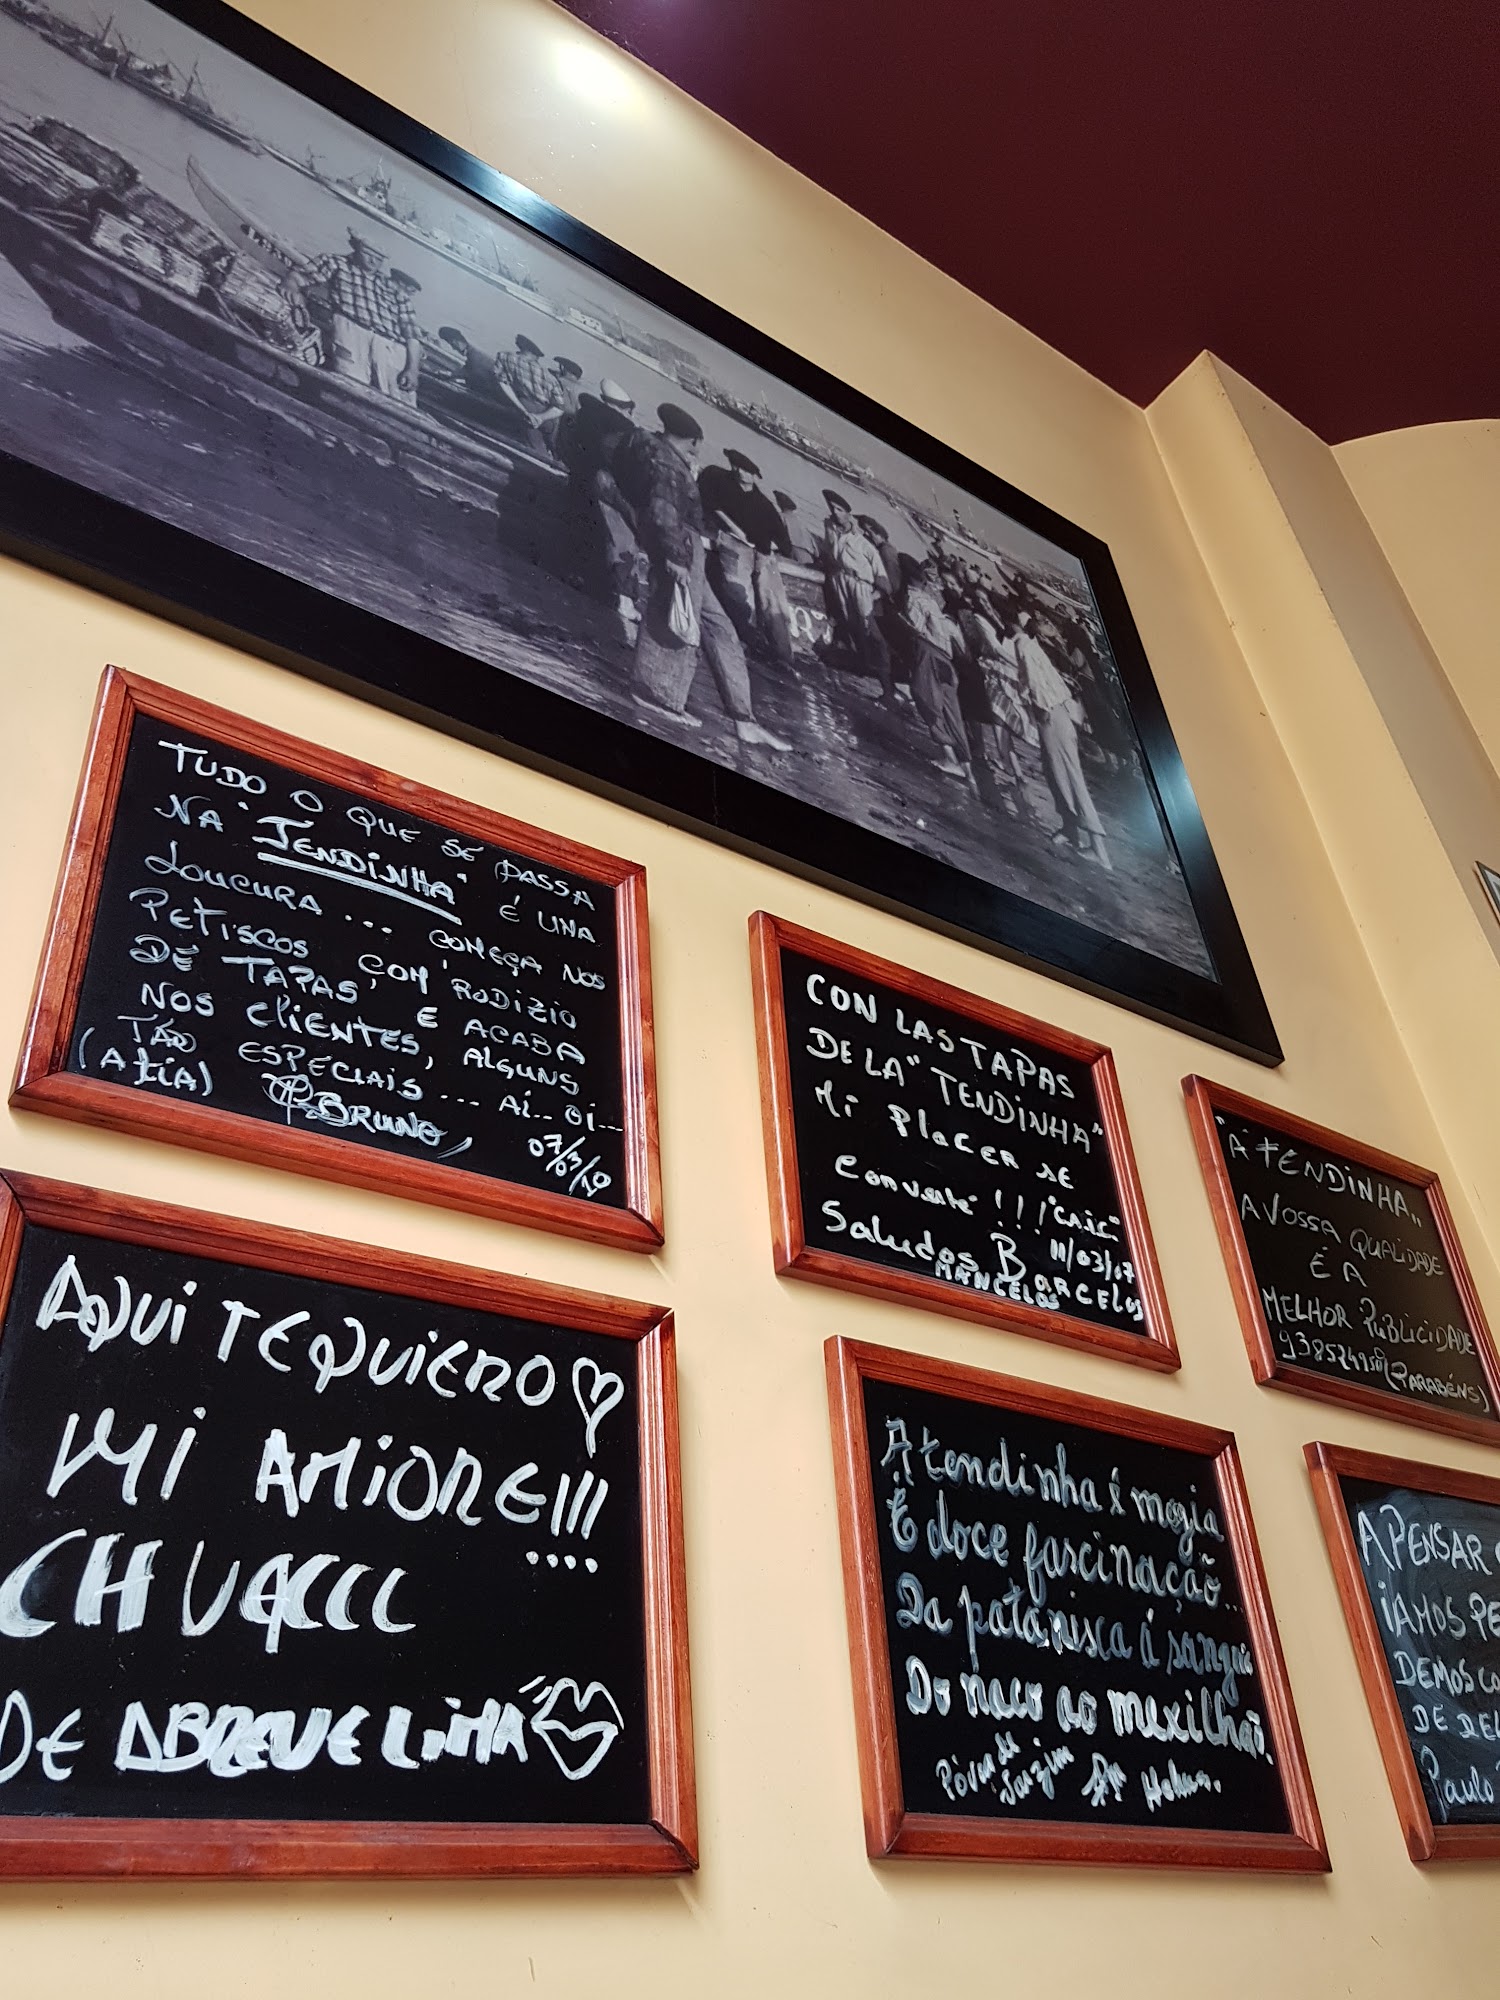 TUDO O QUE SE PASSA
NA "TENDINHA" É UMA
LOUCURA ... COMEÇA NOS
PETISCOS COM "RODIZIO
DE TAPAS" E ACABA
NOS CLIENTES, ALGUNS
TÃO ESPECIAIS ... AI... OI...
(A TIA) BRUNO,
07/03/10
CON LAS TAPAS
DE LA "TENDINHA"
MI PLACER SE
Converte !!! "CAIC"
11/03/07
Saludos BARCELOS
MANCELOS
"A TENDINHA"
A VOSSA QUALIDADE
É A
MELHOR PUBLICIDADE
938524950 (PARABÉNS)
AQUI TE QUIERO
MI AMIORE!!!
CHUACCC
DE ABREUELINHA
A tendinha é magia
É doce fascinação...
Da patanisca á sangria
Do naco ao mexilhão.
Póvoa de Varzim
A PENSAR
IAMOS PE
DEMOS CO
DE DEL
Paulo